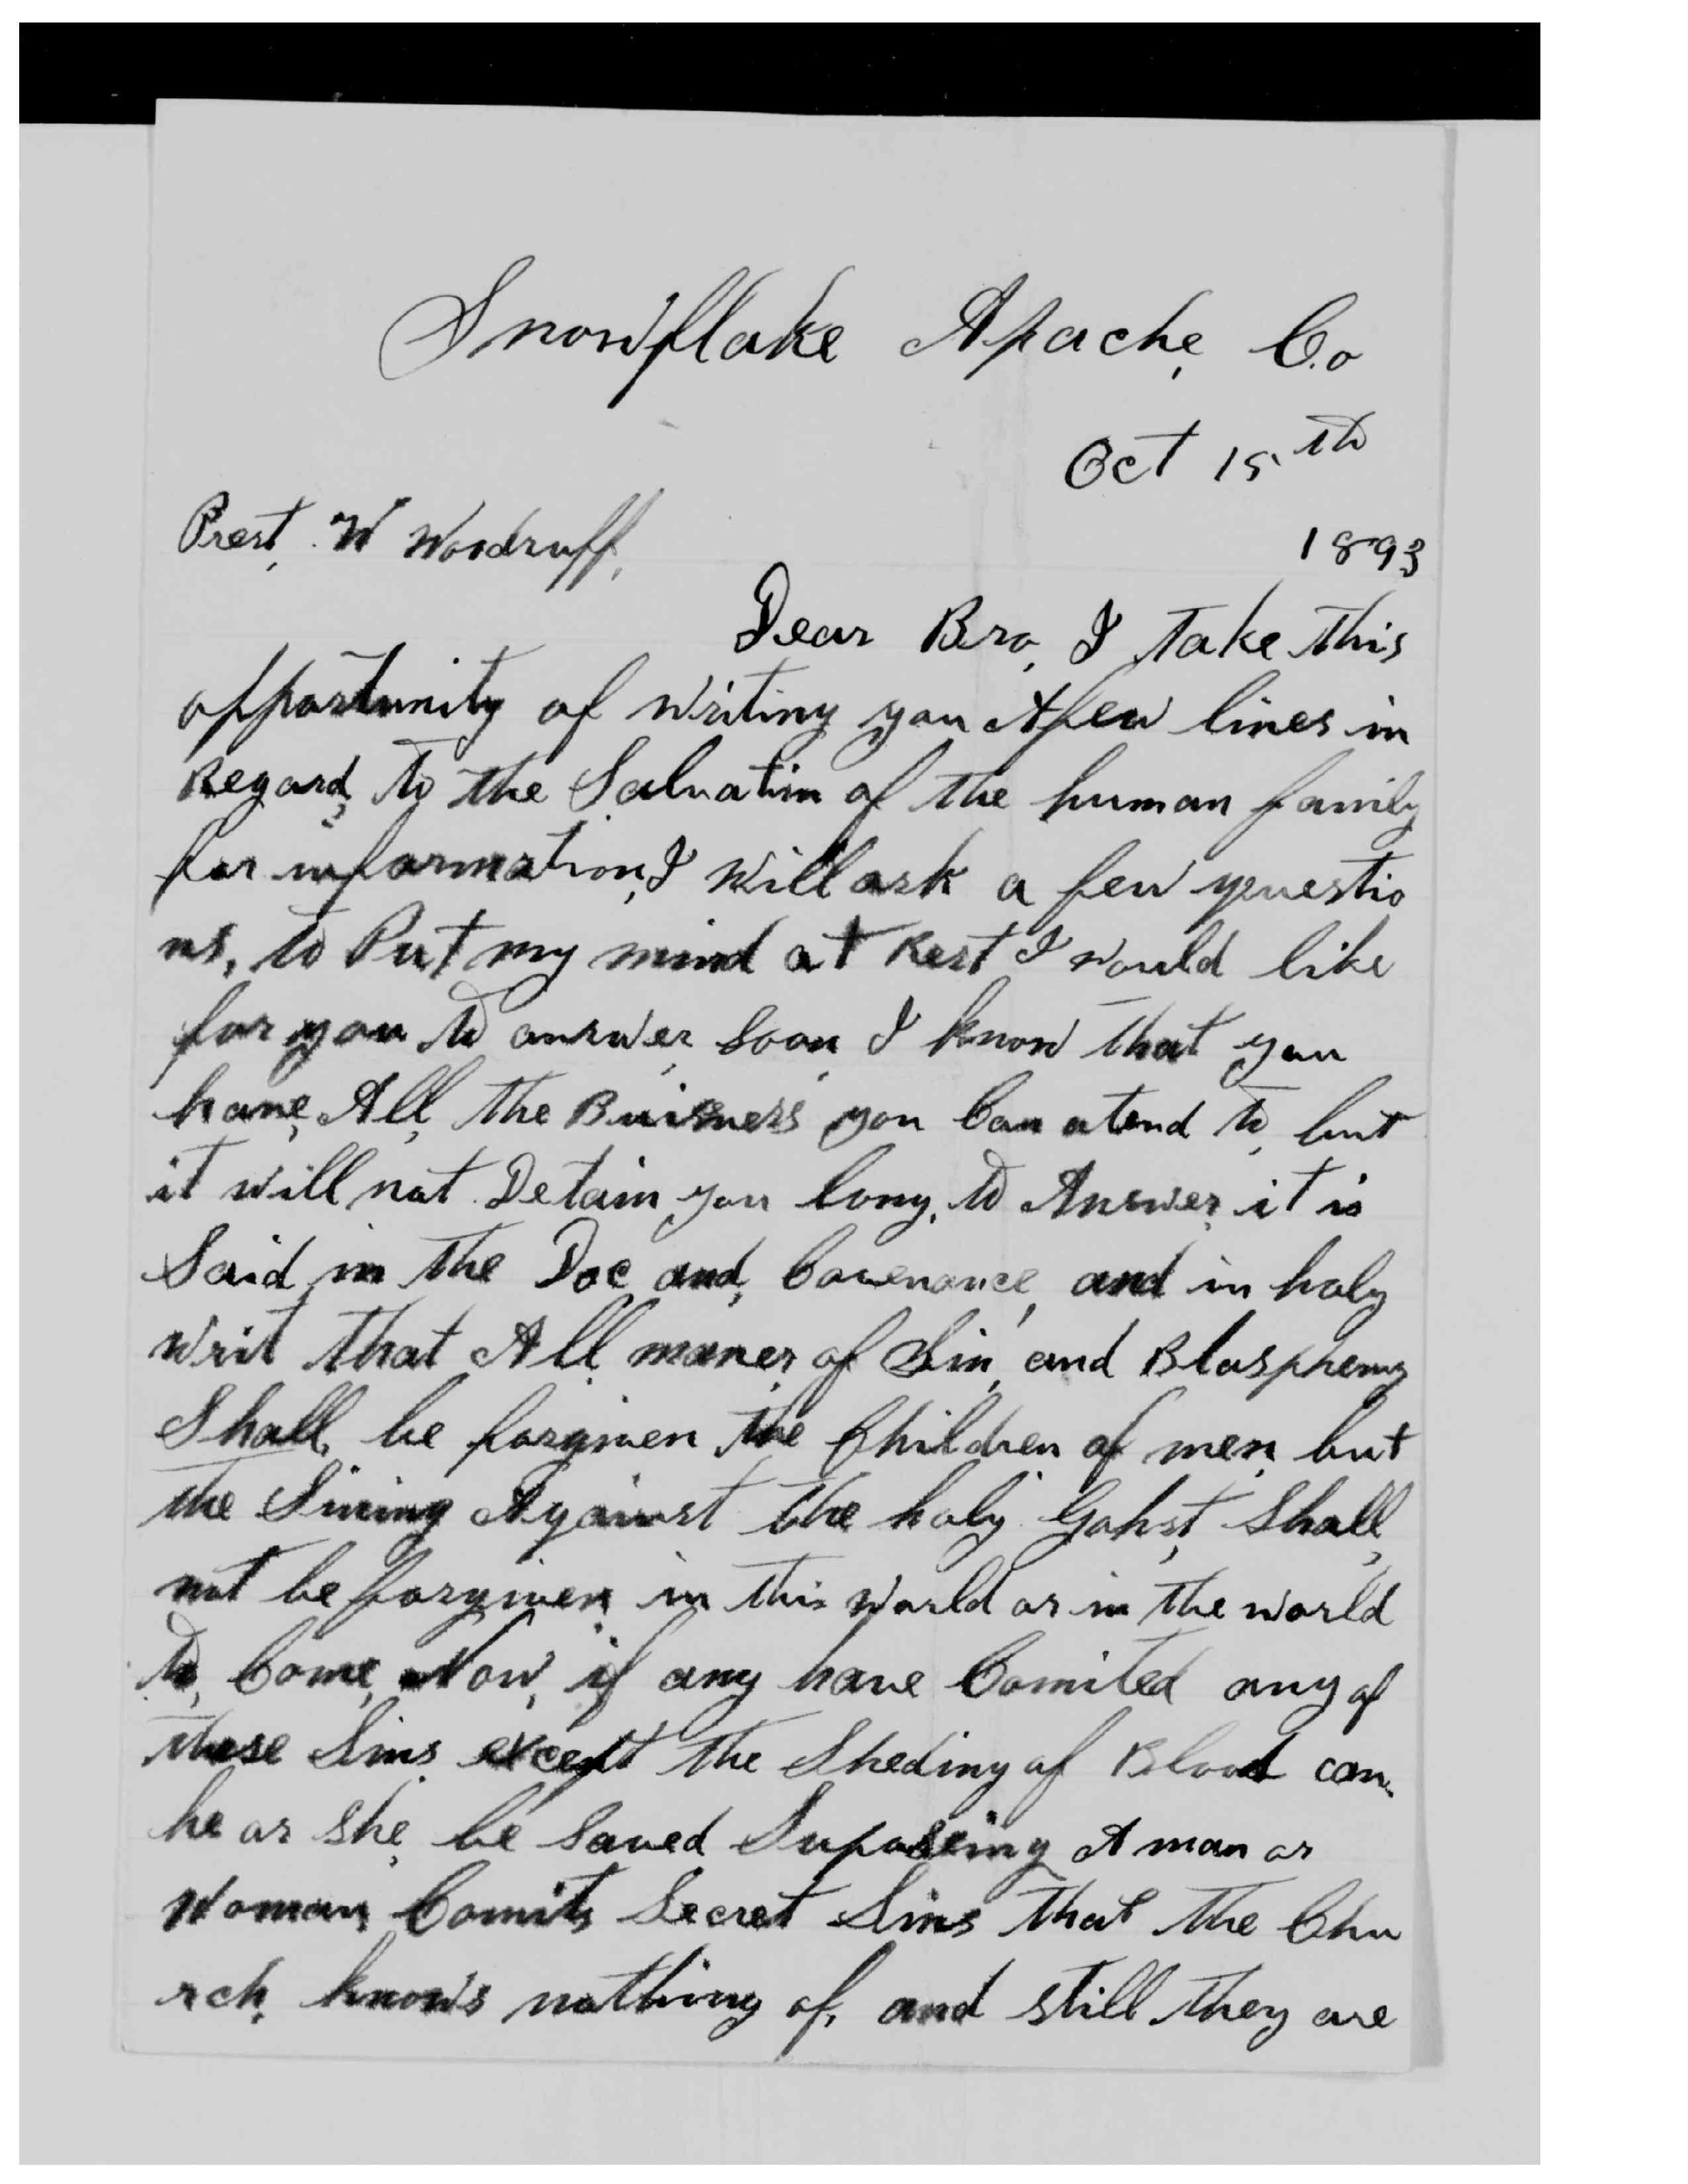 Snowflake Apache, Co
Oct 15th
Prest, W Woodruff,
1893
Dear Bro, I take this
opportunity of writing you A few lines in
Regard, to the Salvation of the human family
for information, I will ask a few questio
ns, to Put my mind at Rest I would like
for you to answer, soon, I know that you
have, All, the Buisness you Can atend to, but
it will not Detain you long, to Answer, it is
Said, in the Doc and, Covenance, and in holy
writ that All, maner, of Sin, and Blasphemy
Shall, be forgiven the Children of men, but
the Sining Against the holy Gohst, Shall,
not be forgiven, in this world or in the world
to, Come, Now, if any have Comited any of
these Sins, except the Sheding of Blood can,
he or she, be Saved Suposeing A man or
Woman, Comits Secret Sins that the Chu
rch, knows nothing of, and still they are